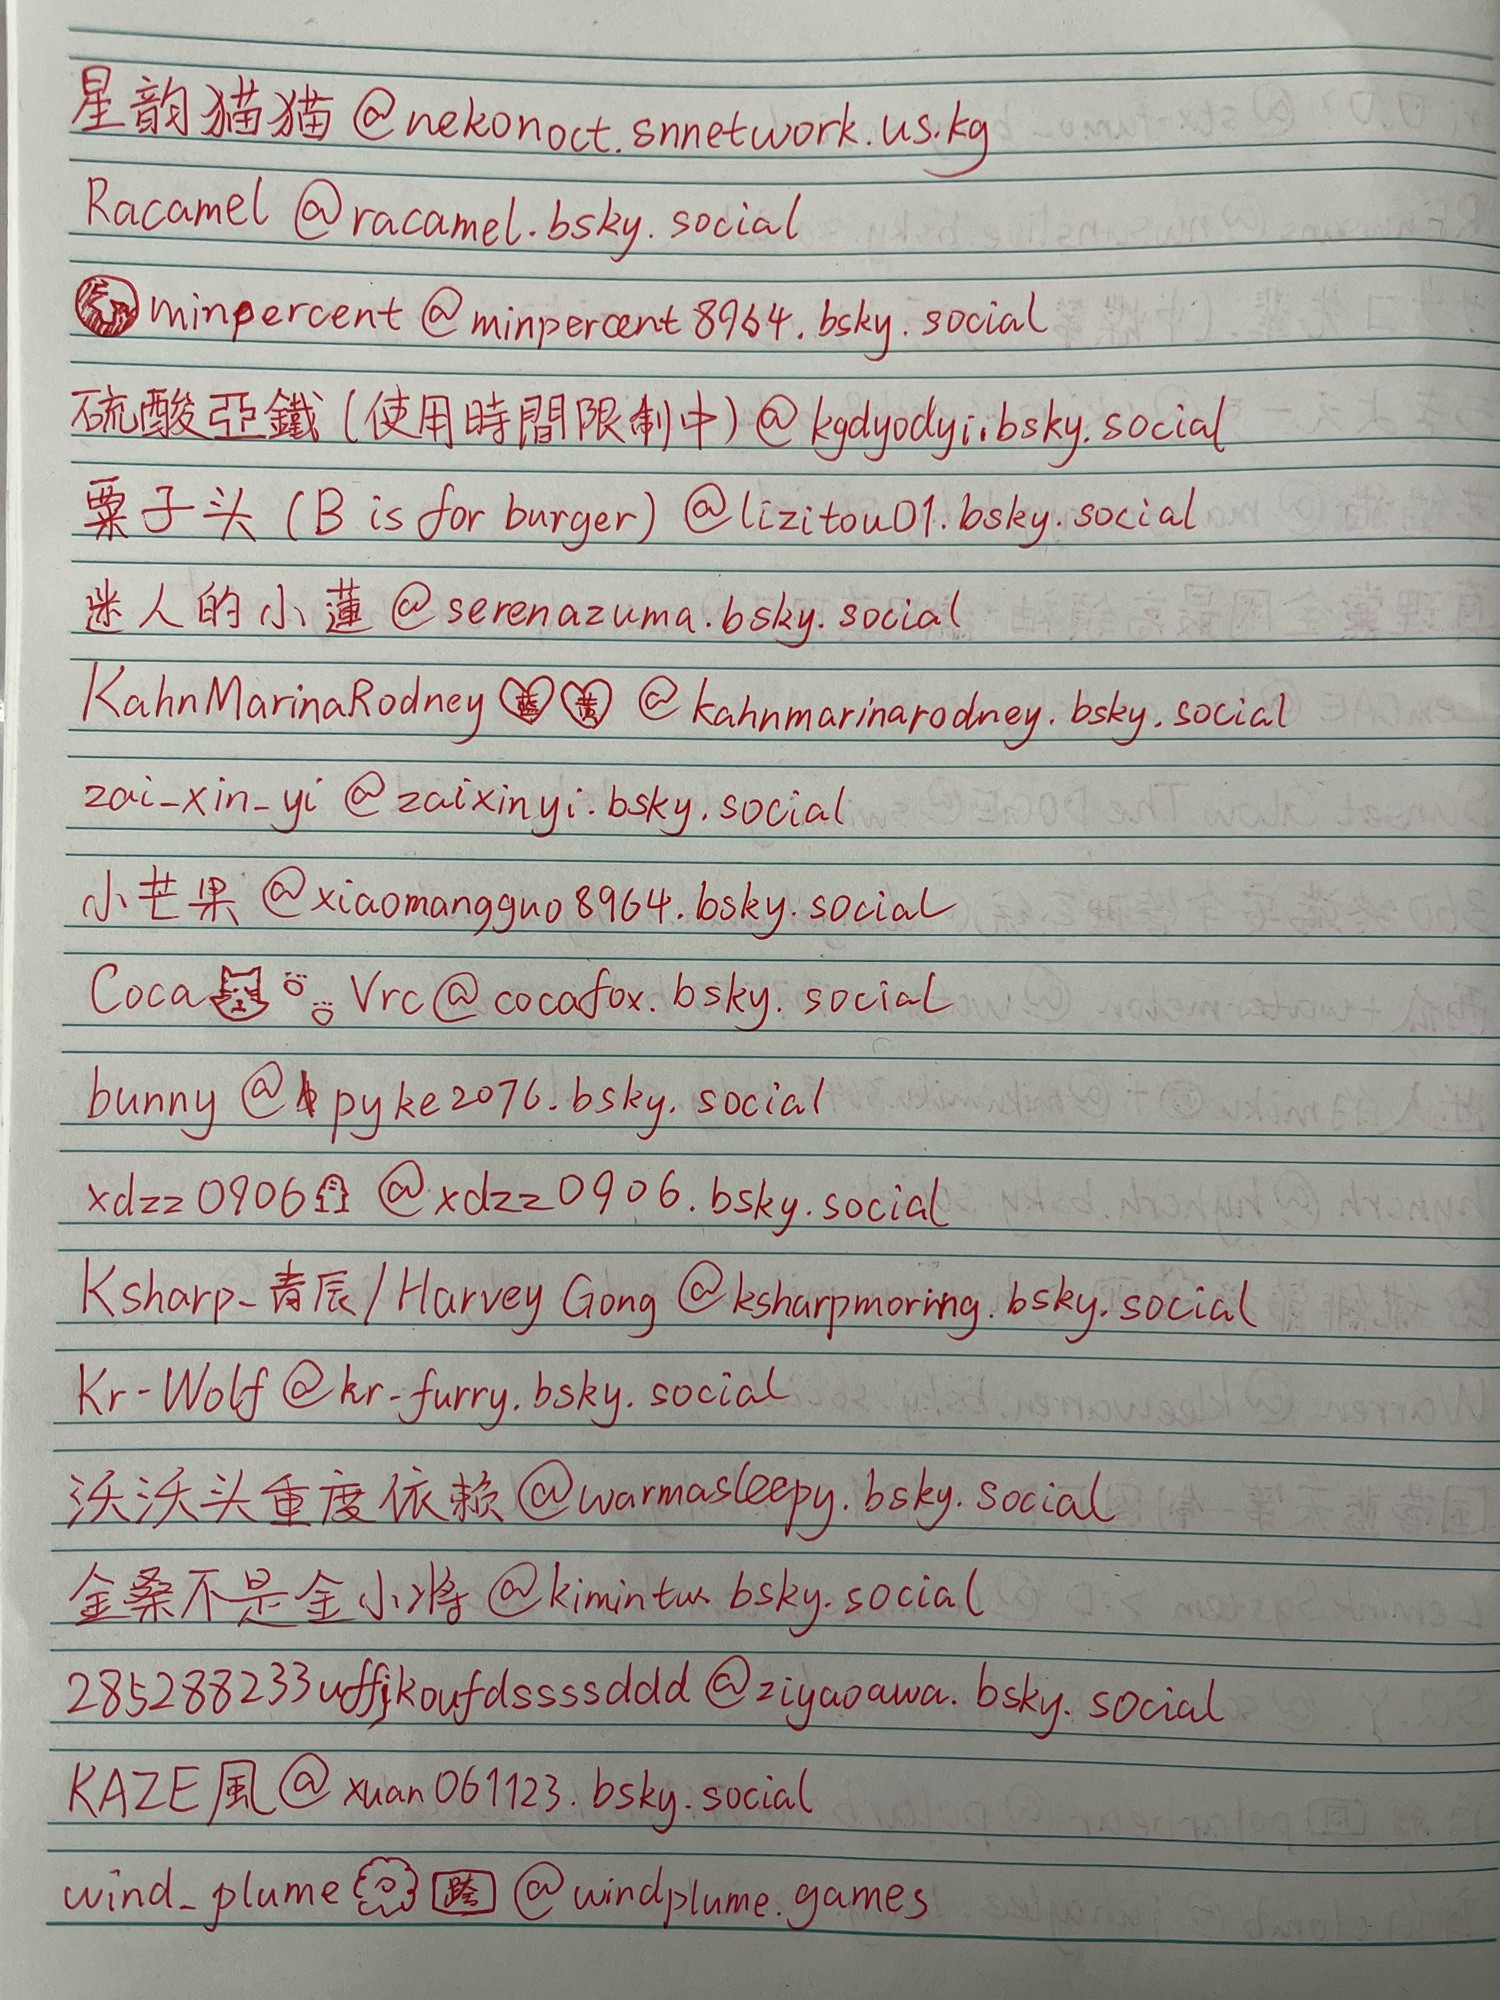 星韵猫猫 @nekonoct.snnetwork.us.kg
Racamel @racamel.bsky.social
minpercent @minpercent8964.bsky.social
硫酸亞鐵 (使用時間限制中) @kgdyodyi.bsky.social
粟子头 (B is for burger) @lizitou01.bsky.social
迷人的小蓮 @serenazuma.bsky.social
KahnMarinaRodney 藍 黄 @kahnmarinarodney.bsky.social
zai_xin_yi @zaixinyi.bsky.social
小芒果 @xiaomangguo8964.bsky.social
Coca Vrc @cocafox.bsky.social
bunny @pyke2076.bsky.social
xdzz0906 @xdzz0906.bsky.social
Ksharp_青辰/Harvey Gong @ksharpmoring.bsky.social
Kr-Wolf @kr-furry.bsky.social
沃沃头重度依赖 @warmasleepy.bsky.social
金桑不是金小将 @kimintw.bsky.social
285288233uffjkoufdssssddd @ziyaoawa.bsky.social
KAZE風 @xuan061123.bsky.social
wind_plume 跨 @windplume.games